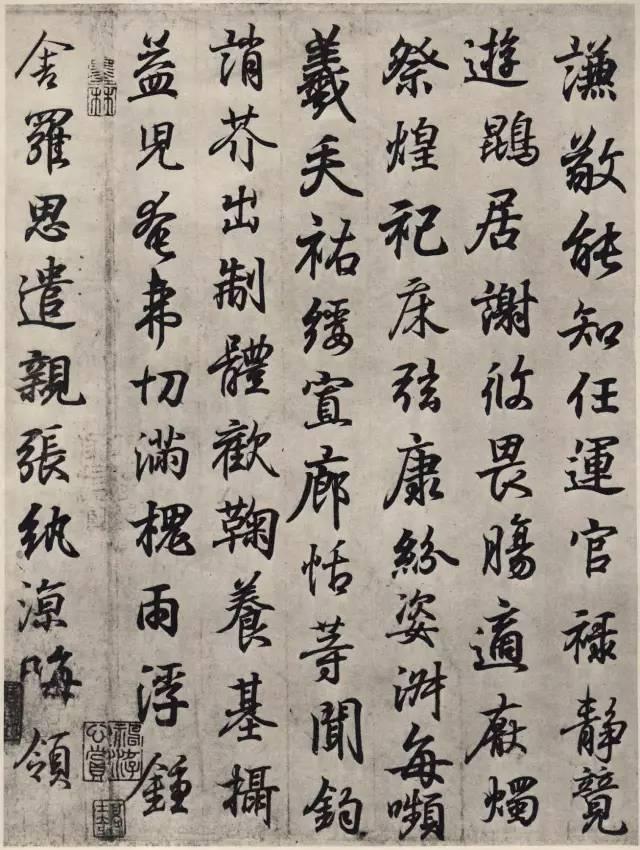 謙敬能知任運官祿静竟
遊鵾居謝攸畏腸適厭燭
祭煌祀床弦康紛姿淵每嚬
羲矢祐綏寔廊恬等聞鈞
誚芥出制體歡鞠養基攝
益兒奄弗切滿槐雨浮鍾
舍羅思遣親張紈涼晦領